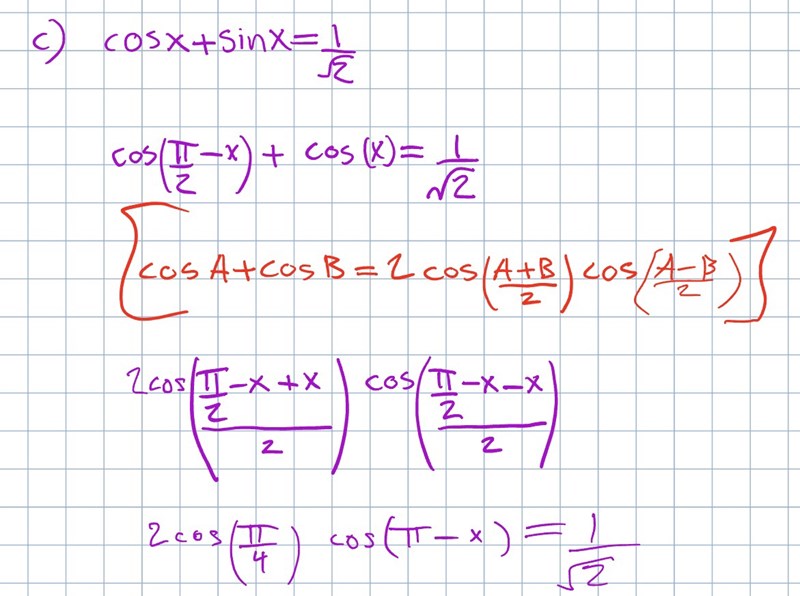 c) cosx+sinx=1/√2
cos(π/2-x)+ cos(x)=1/√2
[cosA+cosB=2cos((A+B)/2)cos((A-B)/2)]
2cos((π/2-x+x)/2) cos((π/2-x-x)/2)
2cos(π/4) cos(π-x)=1/√2